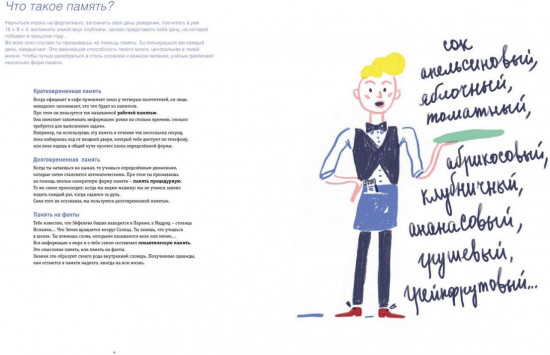 Что такое память?
Научиться играть на фортепиано, запомнить свой день рождения, посчитать в уме
15 + 8 + 4, вспомнить зимой вкус клубники, заново представить себе дачу, на которой
побывал в прошлом году...
Во всех этих случаях ты призываешь на помощь память. Ты пользуешься ею каждый
день, каждый миг. Это важнейшая способность твоего мозга, центральная в твоей
жизни. Чтобы лучше разобраться в столь сложном и важном явлении, учёные различают
несколько форм памяти.
Кратковременная память
Когда официант в кафе принимает заказ у четверых посетителей, он лишь
ненадолго запоминает, кто что будет из напитков.
При этом он пользуется так называемой рабочей памятью.
Она помогает запоминать информацию ровно на столько времени, сколько
требуется для выполнения задачи.
Например, ты используешь эту память в течение тех нескольких секунд,
пока набираешь код от входной двери, который тебе сообщили по телефону,
или пока ищешь в общей куче кусочек пазла определённой формы.
Долговременная память
Когда ты катаешься на лыжах, то учишься определённым движениям,
которые затем становятся автоматическими. При этом ты призываешь
на помощь вполне конкретную форму памяти – память процедурную.
То же самое происходит, когда ты водишь машину: мы не учимся заново
водить каждый раз, когда садимся за руль.
Сами того не осознавая, мы пользуемся долговременной памятью.
Память на факты
Тебе известно, что Эйфелева башня находится в Париже, а Мадрид – столица
Испании... Что Земля вращается вокруг Солнца. Ты знаешь, что учишься
в школе. Ты помнишь слова, которыми называются всё или иное...
Вся информация о мире и о тебе самом составляет семантическую память.
Это смысловая память, или память на факты.
Знания эти образуют своего рода внутренний словарь. Полученные однажды,
они остаются в памяти надолго, иногда на всю жизнь.
сок
апельсиновый,
яблочный,
томатный,
абрикосовый,
клубничный,
ананасовый,
грушевый,
грейпфрутовый...